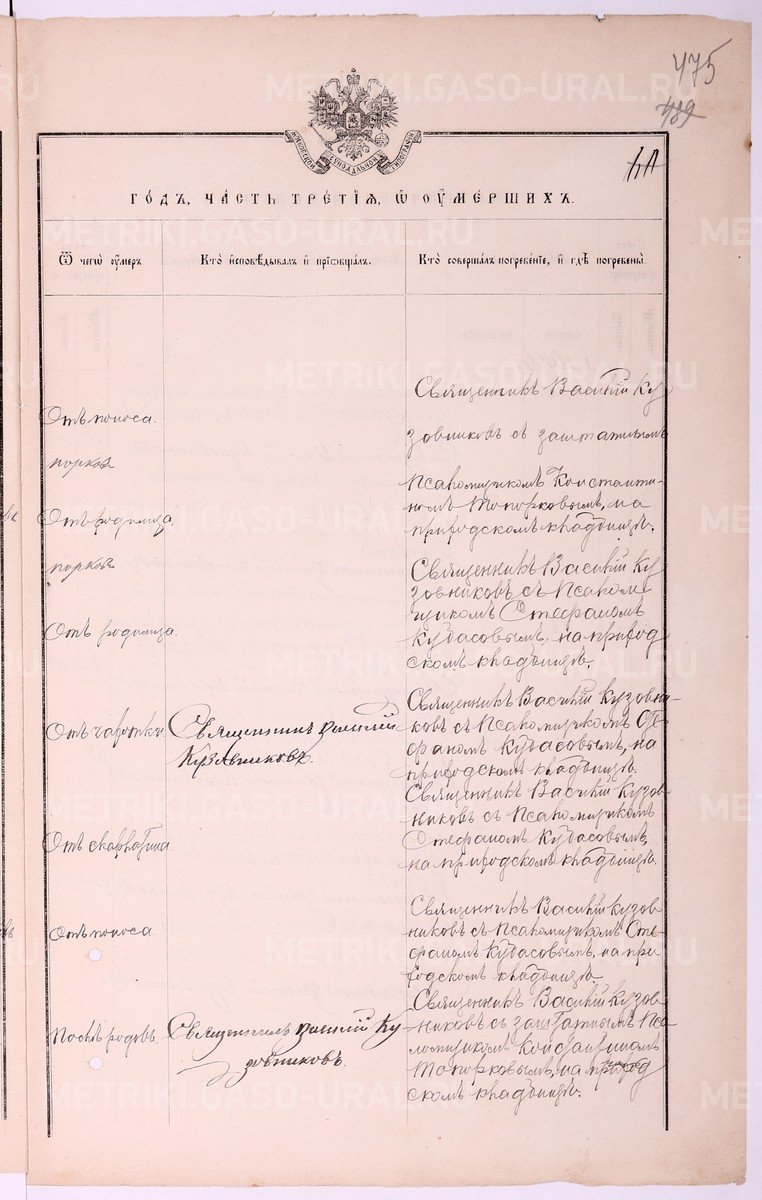 475
489
МОСКОВСКОЙ СѴНОДАЛЬНОЙ ТИПОГРАФІИ
ГО́ДЪ, ЧА́СТЬ ТРЕ́ТІѦ, Ѡ҆ ОУ҆МЕ́РШИХЪ.
Ѿ чегѡ̀ ᲂу҆́меръ
Кто̀ и҆сповѣ́дывалъ и҆ прїѡбща́лъ.
Кто̀ соверша́лъ погребе́нїе, и҆ гдѣ̀ погребены̀.
Отъ поноса.
Священникъ Василій Ку
зовниковъ съ заштатнымъ
Псаломщикомъ Константи-
номъ Топорковымъ, на
приходскомъ кладбищѣ.
Отъ родимца
Священникъ Василій Ку
зовниковъ съ Псалом
щикомъ Стефаномъ
Кубасовымъ, на приход
скомъ кладбищѣ.
Отъ родимца.
Отъ чахотки
Священникъ Василій
Кузовниковъ.
Священникъ Василій Кузовни-
ковъ съ Псаломщикомъ Сте
фаномъ Кубасовымъ, на
приходскомъ кладбищѣ.
Отъ скарлатина
Священникъ Василій Кузов
никовъ съ Псаломщикомъ
Стефаномъ Кубасовымъ,
на приходскомъ кладбищѣ.
Отъ поноса.
Священникъ Василій Кузов
никовъ съ Псаломщикомъ Сте
фаномъ Кубасовымъ, на при
ходскомъ кладбищѣ
Послѣ родовъ.
Священникъ Василій Ку
зовниковъ.
Священникъ Василій Кузов
никовъ съ заштатнымъ Пса
ломщикомъ Константиномъ
Топорковымъ, на приход
скомъ кладбищѣ.
METRIKI.GASO-URAL.RU